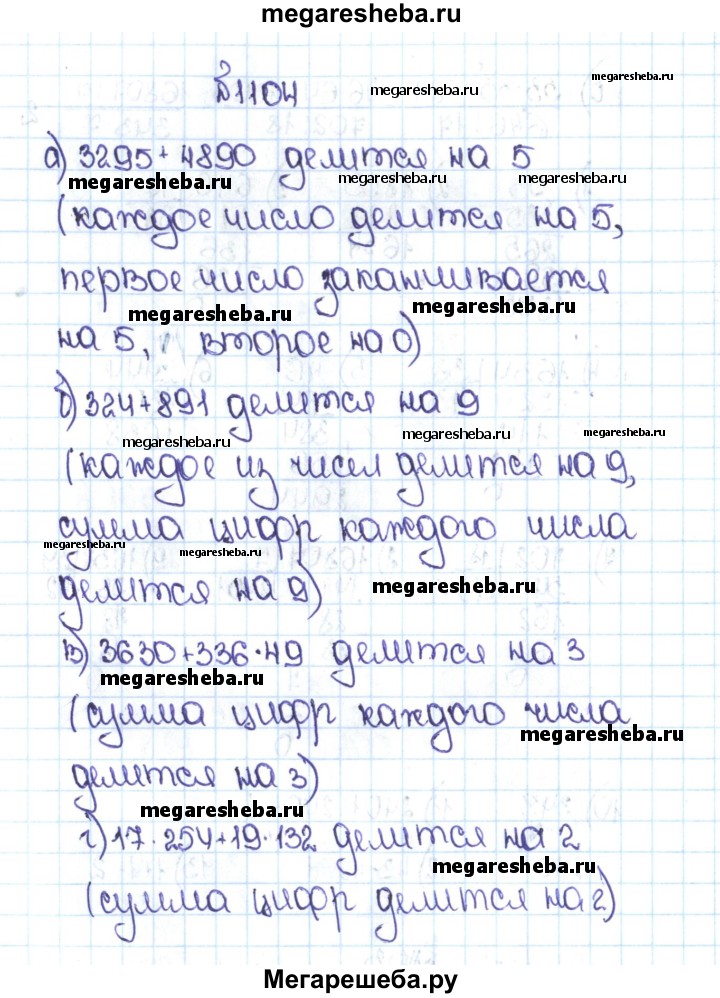 megaresheba.ru
№1104
megaresheba.ru
megaresheba.ru
а) 3295+4890 делится на 5
megaresheba.ru
megaresheba.ru
megaresheba.ru
(каждое число делится на 5,
первое число заканчивается
megaresheba.ru
megaresheba.ru
на 5, второе на 0)
б) 324+891 делится на 9
megaresheba.ru
megaresheba.ru
megaresheba.ru
(каждое из чисел делится на 9,
сумма цифр каждого числа
megaresheba.ru
megaresheba.ru
делится на 9)
megaresheba.ru
в) 3630+336·49 делится на 3
megaresheba.ru
(сумма цифр каждого числа
megaresheba.ru
делится на 3)
megaresheba.ru
г) 17·254+19·132 делится на 2
megaresheba.ru
(сумма цифр делится на 2)
Мегарешеба.ру